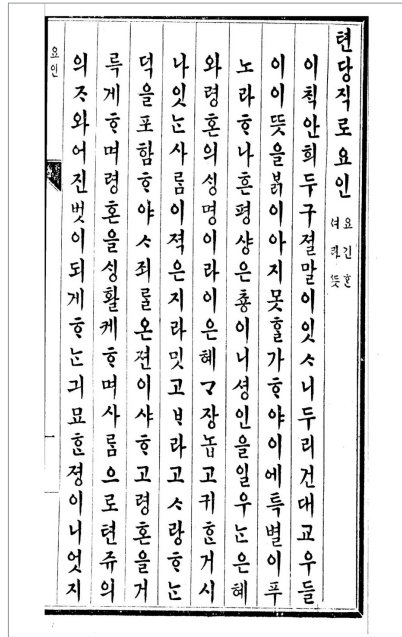 텬당직로요인
요긴ᄒᆞᆫ
뜻
이ᄎᆡᆨ안희두구졀말이잇ᄉᆞ니두리건대교우들
이이뜻을ᄇᆞᆰ이아지못ᄒᆞᆯ가ᄒᆞ야이에특별이푸
노라ᄒᆞ나흔평샹은춍이니셩인을일우ᄂᆞᆫ은혜
와령혼의ᄉᆡᆼ명이라이은혜ᄀᆞ장놉고귀ᄒᆞᆫ거시
나잇ᄂᆞᆫ사ᄅᆞᆷ이젹은지라밋고ᄇᆞ라고ᄉᆞ랑ᄒᆞᄂᆞᆫ
덕을포함ᄒᆞ야ᄉᆞ죄ᄅᆞᆯ온젼이샤ᄒᆞ고령혼을거
륵게ᄒᆞ며령혼을ᄉᆡᆼ활케ᄒᆞ며사ᄅᆞᆷ으로텬쥬의
의ᄌᆞ와어진벗이되게ᄒᆞᄂᆞᆫ긔묘ᄒᆞᆫ졍이니엇지
요인
一